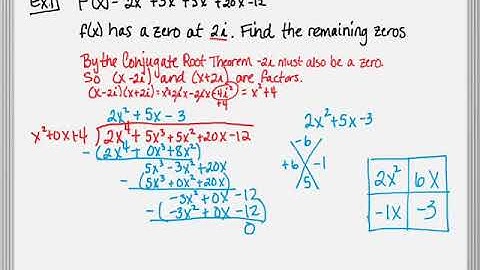 Ex.1) f(x) = 2x⁴+5x³+5x²+20x-12
f(x) has a zero at 2i. Find the remaining zeros
By the Conjugate Root Theorem -2i must also be a zero.
So (x-2i) and (x+2i) are factors.
(x-2i)(x+2i) = x²+2ix-2ix-4i² = x²+4
+4
2x²+5x-3
x²+0x+4 ) 2x⁴+5x³+5x²+20x-12
-(2x⁴+0x³+8x²)
5x³-3x²+20x
-(5x³+0x²+20x)
-3x²+0x-12
-(-3x²+0x-12)
0
2x²+5x-3
-6
+6 -1
5
2x² 6x
-1x -3